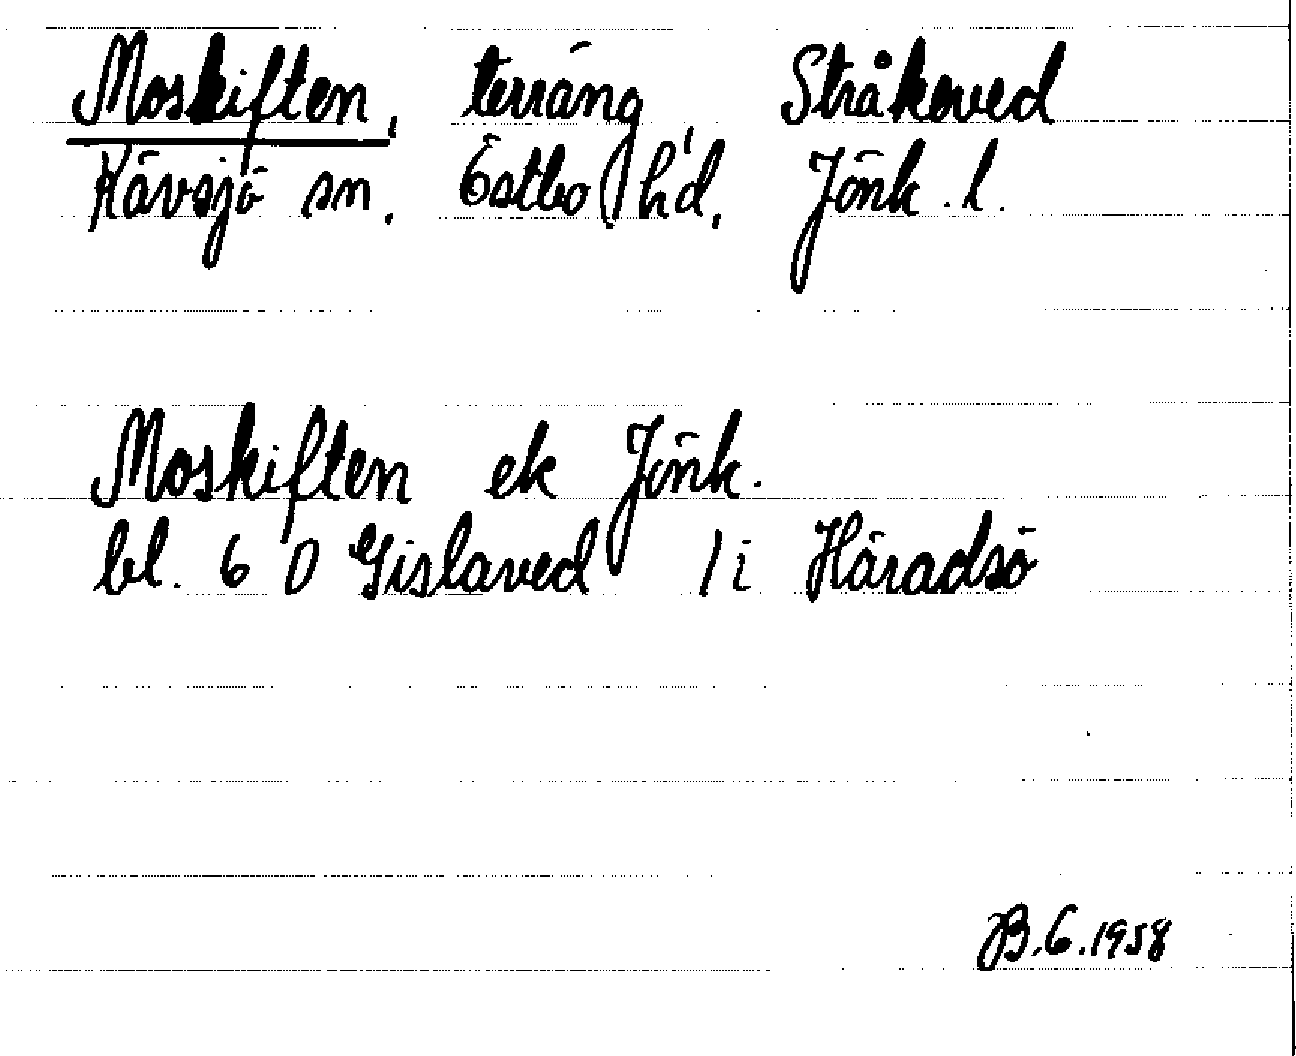 Moskiften, terräng Stråkeved
Kävsjö sn. Östbo h'd, Jönk. l.
Moskiften ek Jönk.
bl. 6 0 Gislaved 1 i Häradsö
B.G.1958